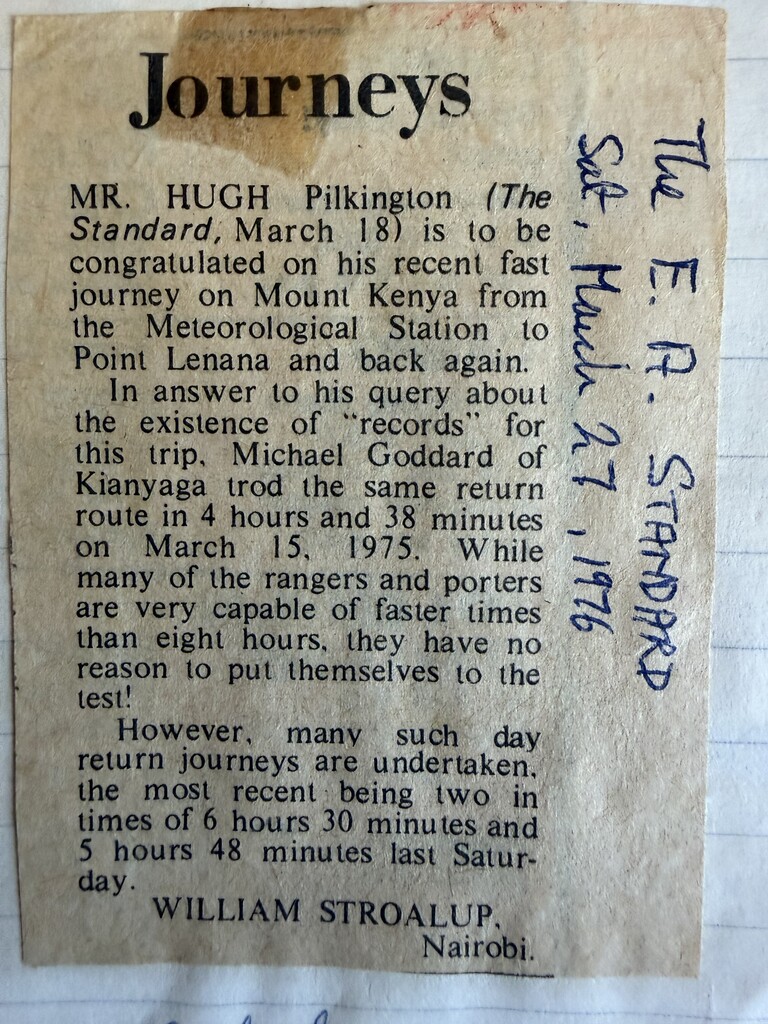 Journeys
MR. HUGH Pilkington (The
Standard, March 18) is to be
congratulated on his recent fast
journey on Mount Kenya from
the Meteorological Station to
Point Lenana and back again.
In answer to his query about
the existence of "records" for
this trip, Michael Goddard of
Kianyaga trod the same return
route in 4 hours and 38 minutes
on March 15, 1975. While
many of the rangers and porters
are very capable of faster times
than eight hours, they have no
reason to put themselves to the
test!
However, many such day
return journeys are undertaken,
the most recent being two in
times of 6 hours 30 minutes and
5 hours 48 minutes last Satur-
day.
WILLIAM STROALUP.
Nairobi.
The E. A. STANDARD
Sat, March 27, 1976